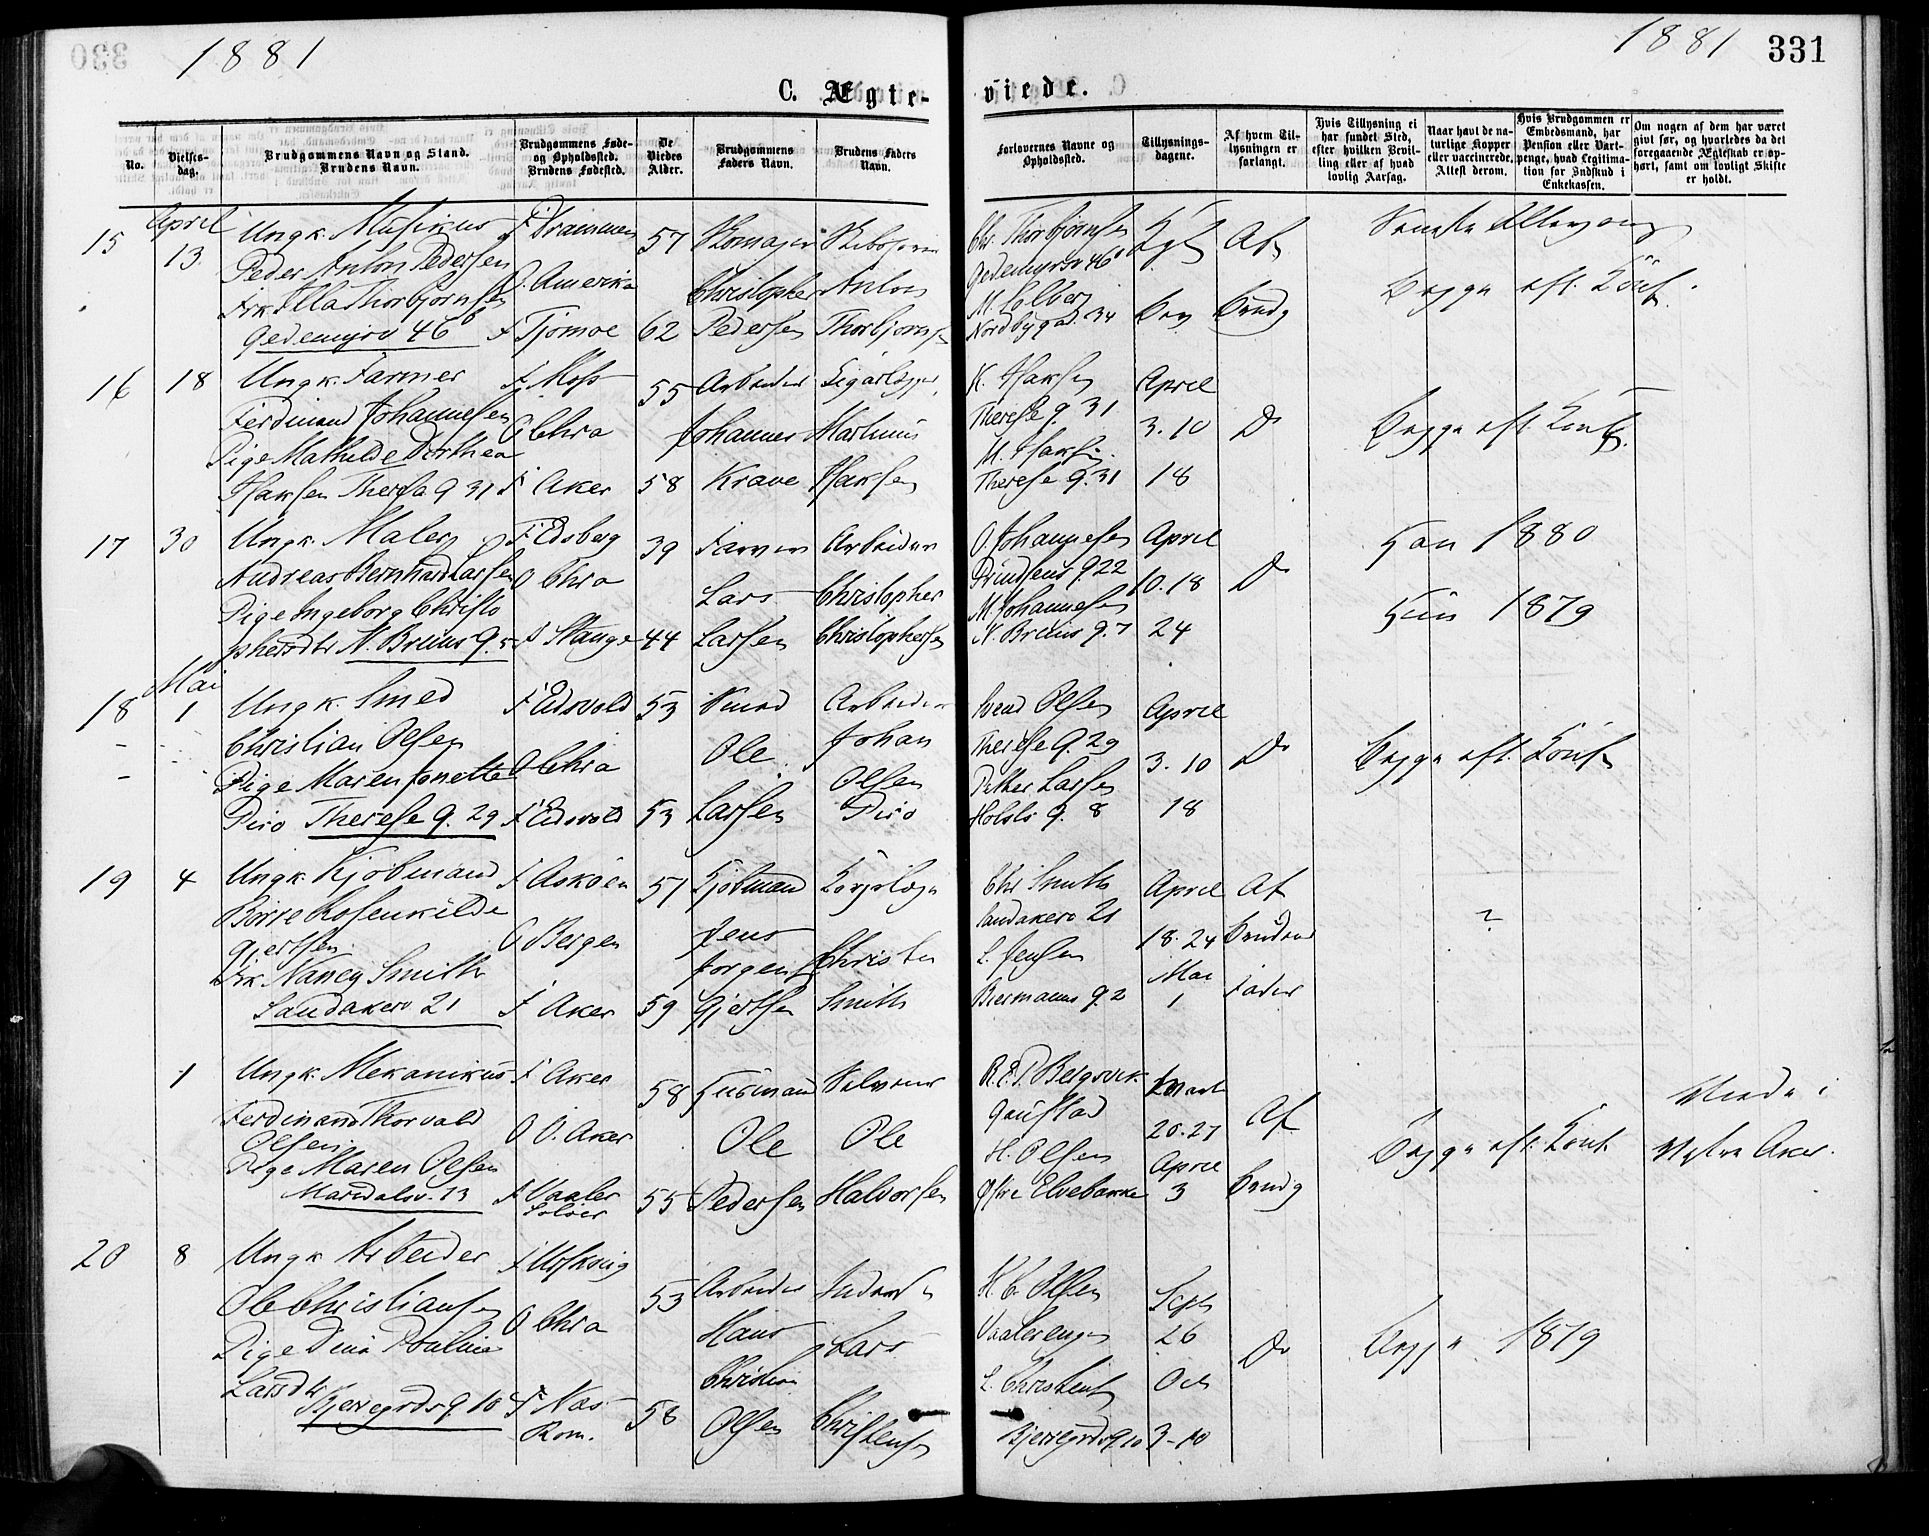 1881
1881
331
C. Ægte-
viede.
No.
Vielses-dag.
Brudgommens Navn og Stand.
Brudens Navn.
Brudgommens Føde-
og Opholdssted.
Brudens Fødested.
De
Viedes
Alder.
Brudgommens
Faders Navn.
Brudens Faders
Navn.
Forlovernes Navne og
Opholdssted.
Tillysnings-
dagene.
Af hvem Til-
lysningen er
forlangt.
Hvis Tillysning ei
har fundet Sted,
efter hvilken Bevil-
ling eller af hvad
lovlig Aarsag.
Naar havt de na-
turlige Kopper
eller vaccinerede,
Attest derom.
Hvis Brudgommen er
Embedsmand, har
Pension eller Vart-
penge, hvad Legitima-
tion for Indskud i
Enkekassen.
Om nogen af dem har været
gift før, og hvorledes da det
foregaaende Ægteskab er op-
hørt, samt om lovligt Skifte
er holdt.
15
April
13
Ungk. Musikus
Peder Anton Pedersen
Frk. Ella Thorbjørnsen
Gedemyrsv 46 b
F Drammen
O. Amerika
F Tjømoe
57
62
Christopher
Pedersen
Anton
Thorbjørnsen
Chr. Thorbjørnsen
Gedemyrsv 46 b
M. Solberg
Nordbygad. 34
Af
Brudg
Begge eft. Conf.
16
18
Ungk. Farmer
Ferdinand Johannesen
Pige Mathilde Dorthea
Isaksen Therese g 31
F. Moss
O Chra
F Aker
55
58
Arbeider
Johannes
Krave
Martinus
Isaksen
K. Isaksen
Therese g. 31
M. Isaksen
Therese g. 31
April
3. 10
18
Do
Begge eft. Conf.
17
30
Ungk. Maler
Andreas Bernhard Larsen
Pige Ingeborg Christo
phersdtr N. Bruns g.
F. Edsberg
O Chra
F Stange
39
44
Farver
Lars
Larsen
Arbeider
Christopher
Christophersen
O. Johannesen
Prindsens g. 22
M. Johannesen
N. Bruns g. 7
April
10. 18
24
Do
Han 1880
Hun 1879
18
Mai
1
Ungk. Smed
Christian Olsen
Pige Maren Jonette
Piro Therese g. 29
F Eidsvold
O Chra
F Eidsvold
53
53
Smed
Ole
Larsen
Arbeider
Johan
Olsen
Piro
Svend Olsen
Therese g. 29
Petter Larsen
Holsts g. 8
April
3. 10
18
Do
Begge eft. Conf.
19
4
Ungk. Kjøbmand
Børre Rosenkilde
Gjertsen
Frk Nancy Smith
Sandakerv 21
F Askøen
O Bergen
F Aker
57
59
Kjøbmand
Jens
Jørgen
Gjertsen
Christen
Smith
Chr Smith
Sandakerv 21
L. Jensen
Biermanns g. 2
April
18. 24
Mai
1
Af
Brudens
Fader
?
1
Ungk. Mekanikus
Ferdinand Thorvald
Olsen
Pige Maren Olsen
Maridalsv. 13
F Aker
O V. Aker
F Vaaler
Soløer
58
55
Husmand
Ole
Pedersen
Selveier
Ole
Halvorsen
R. E. P. Bergsvik
Gaustad
H. Olsen
Østre Elvebakke
Marts
20. 27
April
3
Af
Brudg
Begge eft. Conf.
Viede i
Vestre Aker.
20
8
Ungk. Arbeider
Ole Christiansen
Pige Dina Pouline
Larsdtr
Bjerregrds g. 10
F Ullensag
O Chra
F Næs
Rom.
53
58
Arbeider
Hans
Christian
Olsen
Lars
Christensen
H. C. Olsen
Vaalerengen
L. Christensen
Bjerregrds g 10
Sept
26
Oct
3-10
Do
Begge 1879